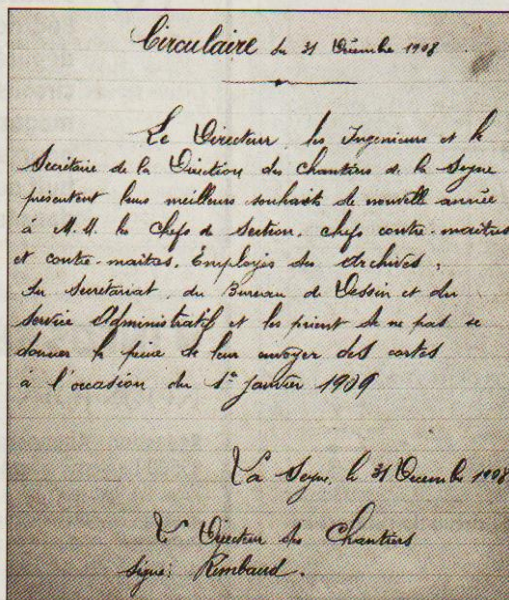 Circulaire du 31 Décembre 1908
Le Directeur, les Ingenieurs et le
Secrétaire de la Direction des chantiers de la Seyne
présentent leurs meilleurs souhaits de nouvelle année
à M.M. les Chefs de Section, chefs contre-maitres
et contre-maitres, Employés des Archives,
du Secrétariat, du Bureau de Dessin et du
Service Administratif et les prient de ne pas se
donner la peine de leur envoyer des cartes
à l'occasion du 1er Janvier 1909
La Seyne, le 31 Decembre 1908
Le Directeur des Chantiers
Signé: Rimbaud.